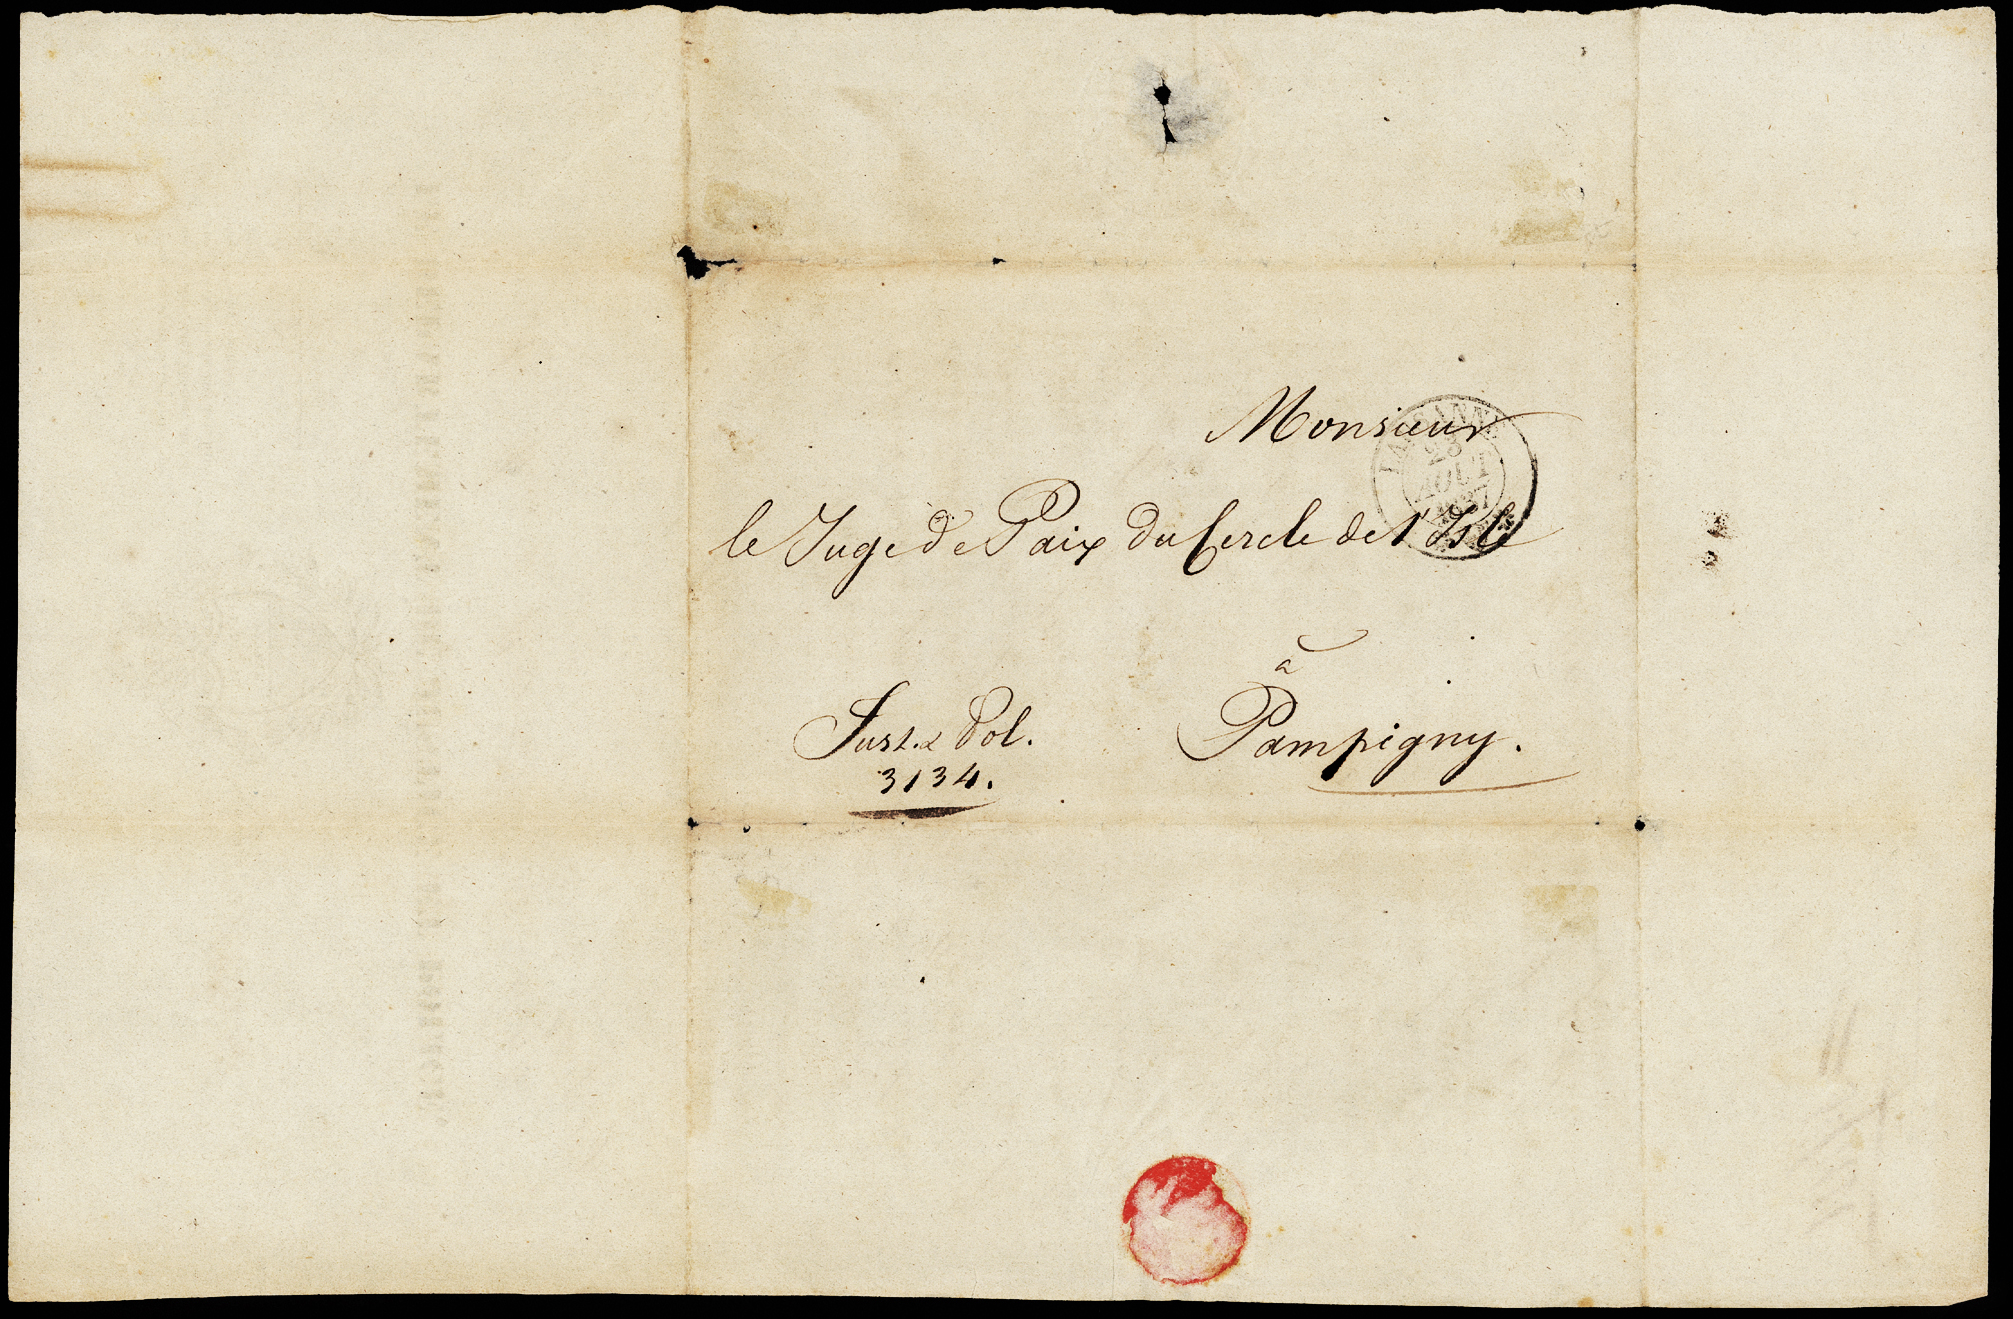 Monsieur
LAUSANNE
AOUT
1837
le Juge de Paix du Cercle de l'Isle
à
Pampigny.
Just. & Pol.
3134.